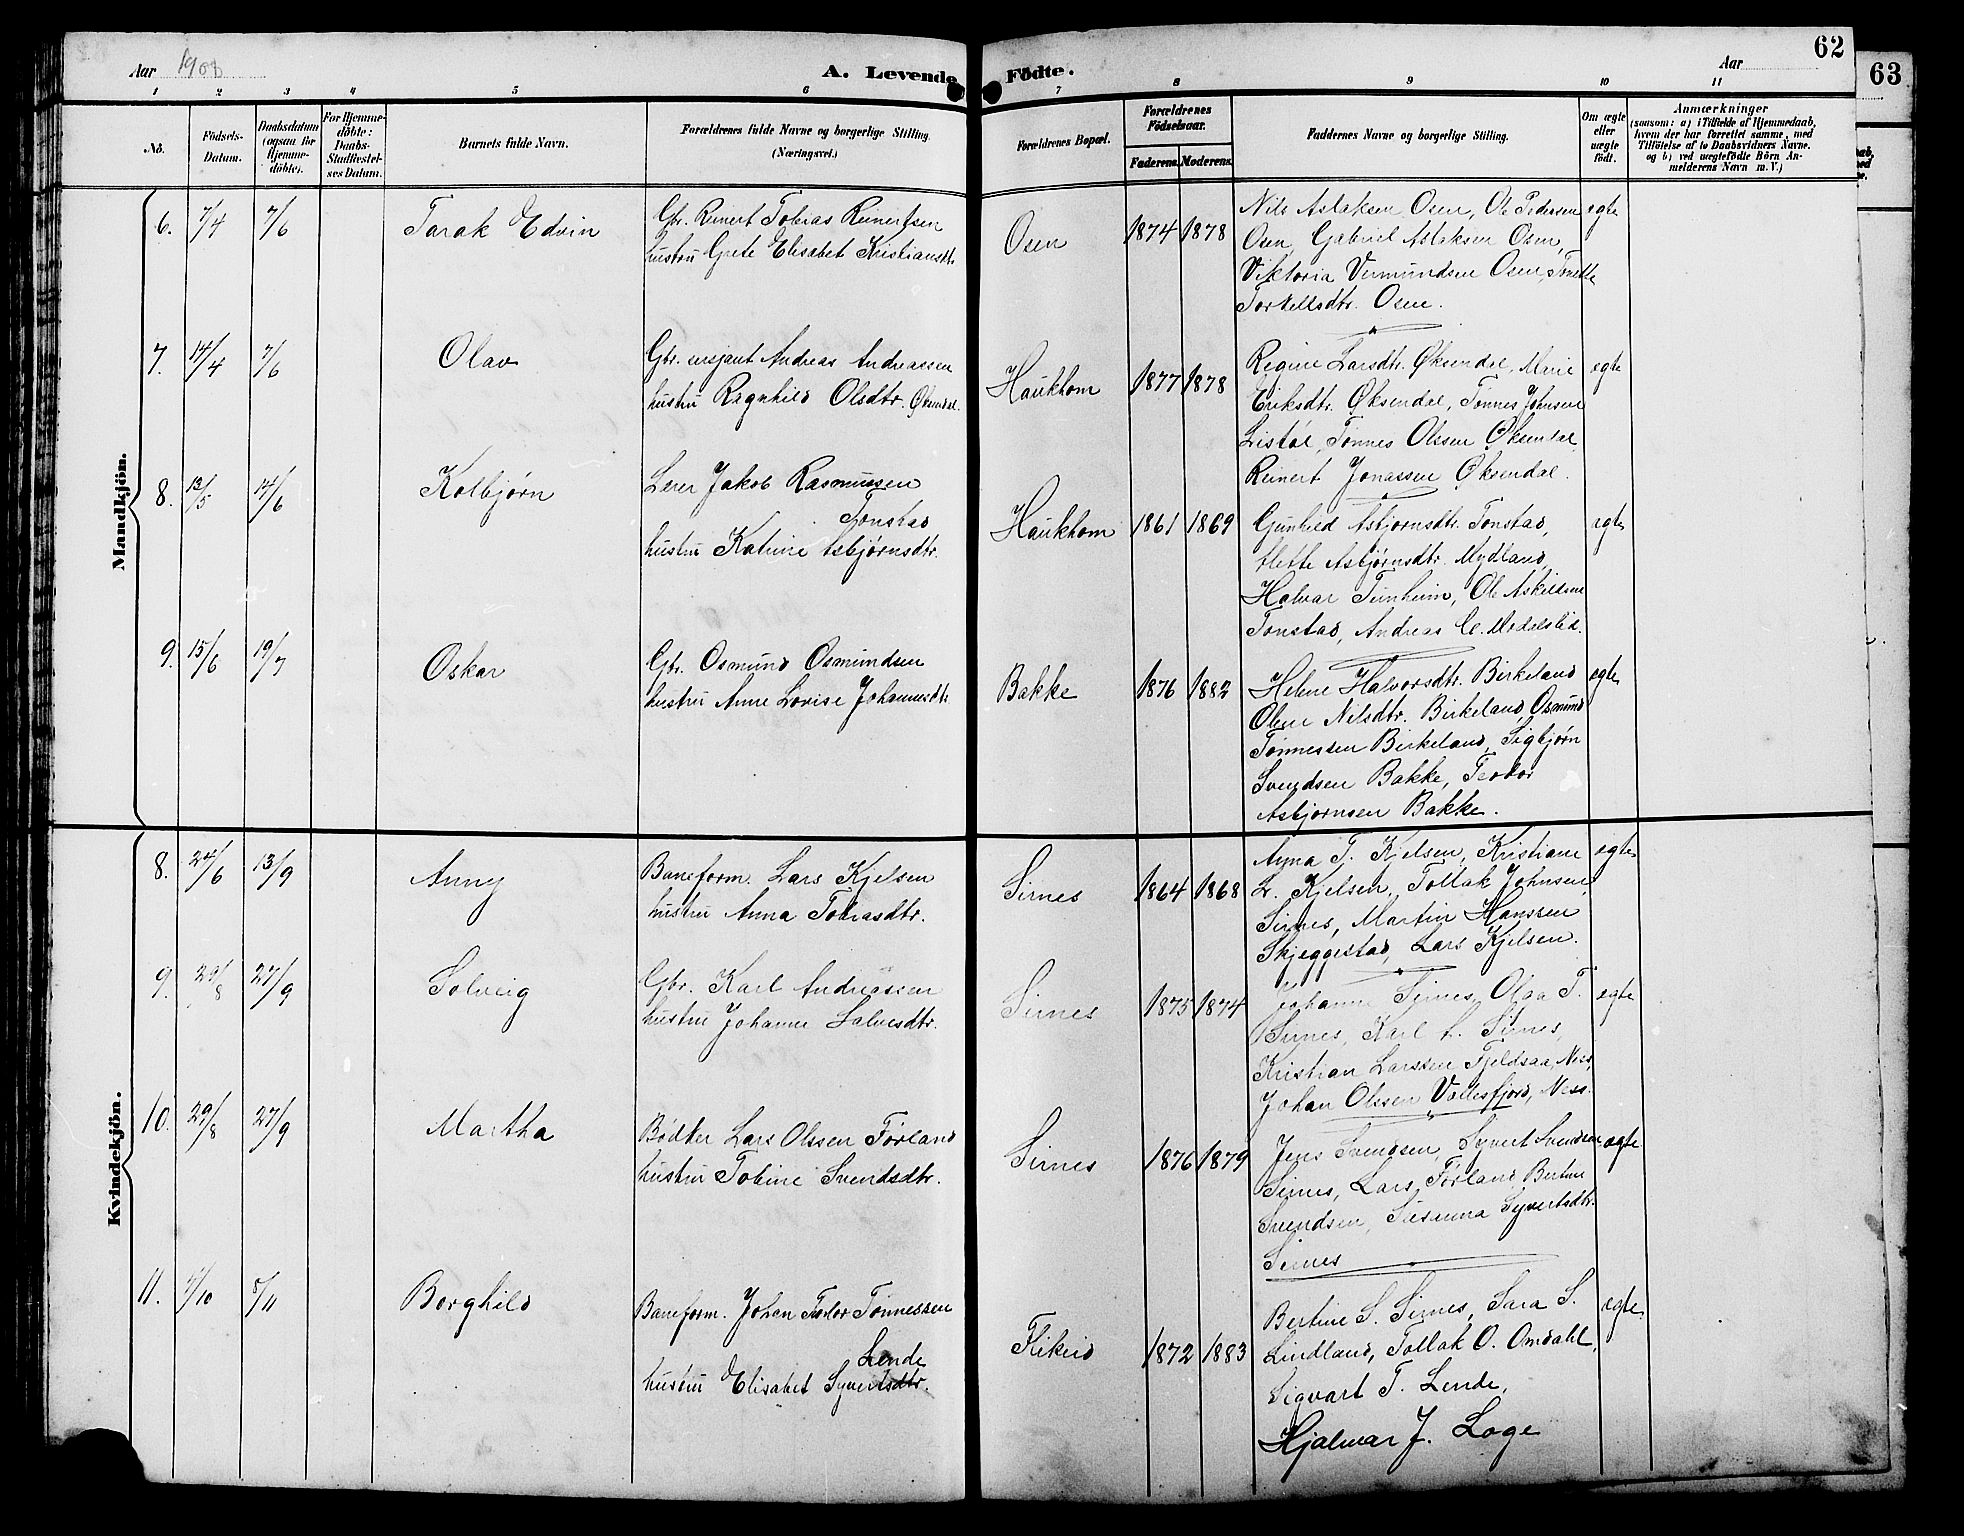 62
63
Aar 1908
A. Levende Födte.
Aar
1 2 3 4 5 6 7 8 9 10 11
No.
Födsels-Datum.
Daabsdatum (ogsaa for Hjemmedöbte).
For Hjemmedöbte: Daabs-Stadfæstelses Datum.
Barnets fulde Navn.
Forældrenes fulde Navne og borgerlige Stilling.
(Næringsvei.)
Forældrenes Bopæl.
Forældrenes Födselsaar.
Faderens. Moderens.
Faddernes Navne og borgerlige Stilling.
Om ægte eller uægte födt.
Anmærkninger
(saasom: a) i Tilfælde af Hjemmedaab,
hvem der har forrettet samme, med
Tilföielse af to Daabsvidners Navne.
og b) ved uægtefödte Börn An-
melderens Navn m. V.)
Mandkjön.
6. 7/4 7/6 Tarak Edvin
Gbr. Reinert Tobias Reinertsen
hustru Grete Elisabet Kristiansdtr.
Osen 1874 1878
Nils Aslaksen Osen, Ole Pedersen
Osen, Gabriel Aslaksen Osen,
Viktoria Vermundsen Osen, Tonette
Torkellsdtr. Osen.
egte
7. 14/4 7/6 Olav
Gbr. sersjant Andreas Andreassen
hustru Ragnhild Olsdtr. Øksendal.
Haukhom 1877 1878
Regine Larsdtr. Øksendal, Marie
Eriksdtr. Øksendal, Tønnes Johnsen
Listøl, Tønnes Olssen Øksendal,
Reinert Jonassen Øksendal.
egte
8. 13/5 14/6 Kolbjørn
Lærer Jakob Rasmussen
Tonstad
hustru Katrine Asbjørnsdtr.
Haukhom 1861 1869
Gunhild Asbjørnsdtr. Tonstad,
Mette Asbjørnsdtr. Mydland,
Halvar Tunheim, Ole Askildsen
Tonstad, Andreas C. Modalsli.
egte
9. 15/6 19/7 Oskar
Gbr. Osmund Osmundsen
hustru Anne Lovise Johannesdtr.
Bakke 1876 1882
Helene Halvorsdtr. Birkeland
Olene Nilsdtr. Birkeland, Osmund
Tønnessen Birkeland, Sigbjørn
Svendsen Bakke, Teodor
Asbjørnsen Bakke.
egte
Kvindekjön.
8. 24/6 13/9 Anny
Baneform. Lars Kjelsen
hustru Anna Tobiasdtr.
Sirnes 1864 1868
Anna T. Kjelsen, Kristiane
L. Kjelsen, Tollak Johnsen
Sirnes, Martin Hanssen
Skjeggestad, Lars Kjelsen.
egte
9. 29/8 27/9 Solveig
Gbr. Karl Andreassen
hustru Johanne Salvesdtr.
Sirnes 1875 1874
Johanne Sirnes, Olga T.
Sirnes, Karl L. Sirnes,
Kristian Larssen Fjeldsaa, Ness,
Johan Olssen Vollesfjord, Ness.
egte
10. 29/8 27/9 Martha
Bødker Lars Olssen Førland
hustru Tobine Svendsdtr.
Sirnes 1876 1879
Jens Svendsen, Syvert Svendsen
Sirnes, Lars Førland, Bertine
Svendsen, Susanna Syvertsdtr.
Sirnes
egte
11. 4/10 8/11 Borghild
Baneform. Johan Teodor Tønnessen
Lende
hustru Elisabet Syvertsdtr.
Flikeid 1872 1883
Bertine S. Sirnes, Sara S.
Lindland, Tollak O. Omdahl,
Sigvart T. Lende,
Hjalmar J. Loge
egte